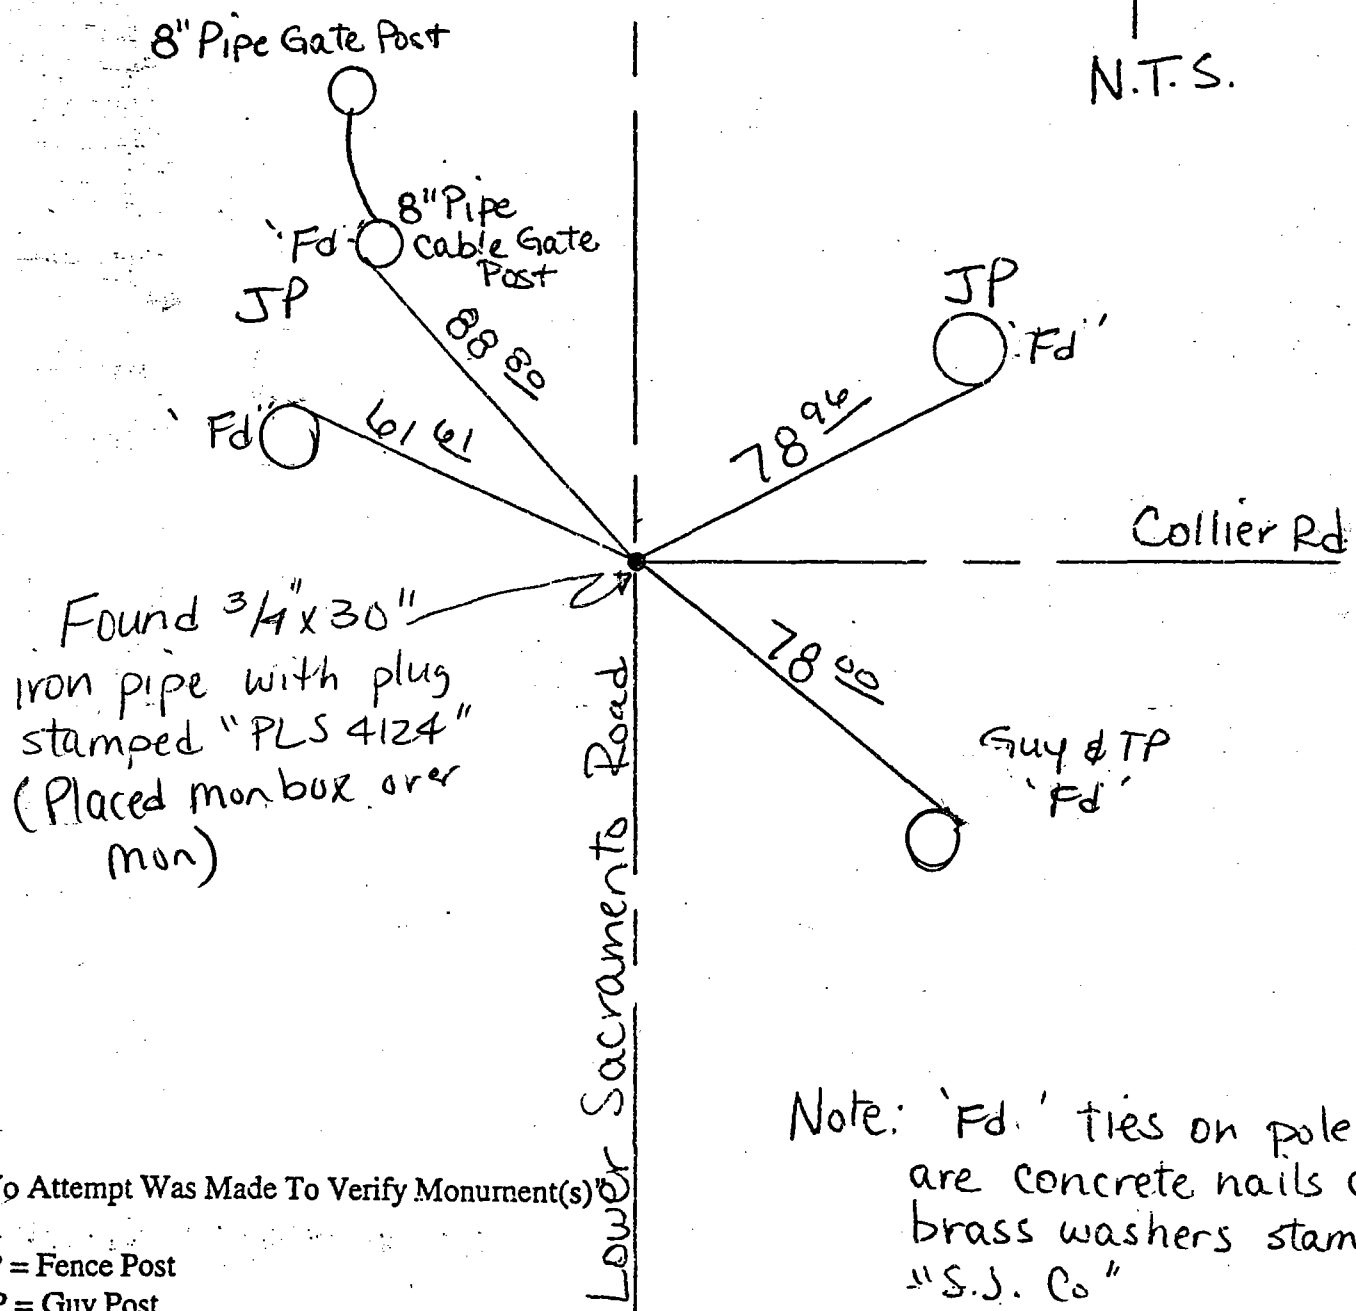 8" Pipe Gate Post
N.T.S.
"Fd"
8" Pipe
Cable Gate
Post
JP
88 80
JP
"Fd"
"Fd"
61 61
78 96
Collier Rd
Found 3/4" x 30"
iron pipe with plug
stamped "PLS 4124"
(Placed mon box over
mon)
78 00
Guy & TP
'Fd'
Lower Sacramento Road
Note: 'Fd.' ties on pole
are concrete nails
brass washers stam
"S.J. Co"
o Attempt Was Made To Verify Monument(s)"
P = Fence Post
P = Guy Post